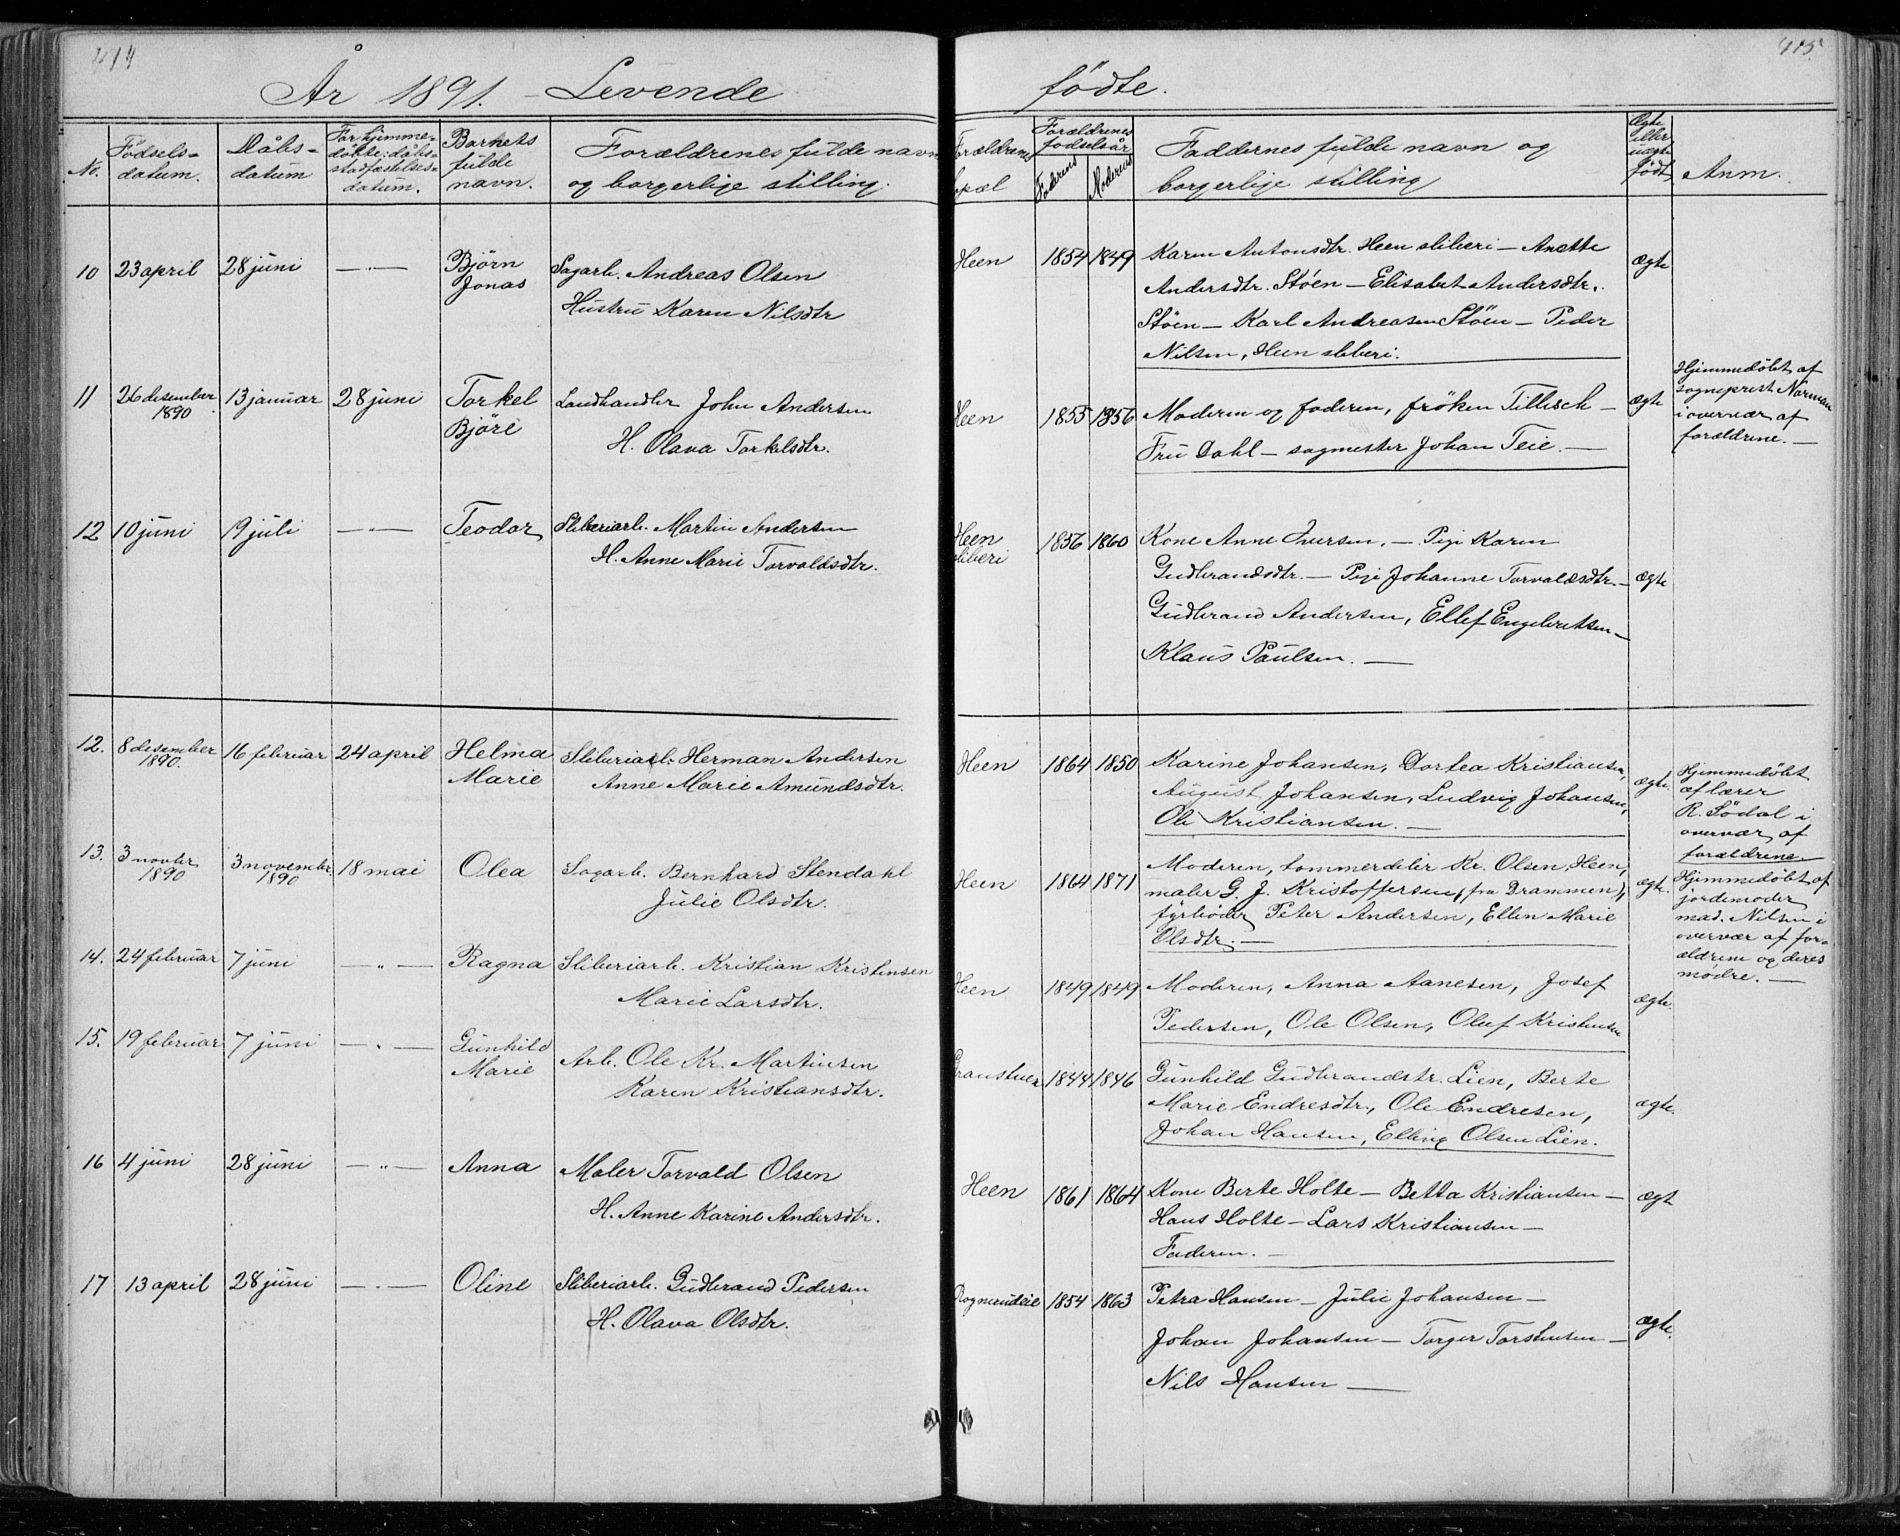 414
År 1891. Levende
No.
Fødsels-
datum.
Dåbs-
datum
For hjemme-
døbte: dåbs-
stadfæstelses-
datum.
Barnets
fulde
navn.
Forældrenes fulde navn
og borgerlige stilling.
10 23 april 28 juni — " — Bjørn
Jonas
Sagarb. Andreas Olsen
Hustru Karen Nilsdtr
11 26 desember
1890
13 januar 28 juni Torkel
Björe
Landhandler John Andersen
H. Olava Torkelsdtr.
12 10 juni 19 juli — " — Teodor Sliberiarb. Martin Andersen
H. Anne Marie Torvaldsdtr.
12. 8 desember
1890.
16 februar 24 april Helma
Marie
Sliberiarb. Herman Andersen
Anne Marie Amundsdtr.
13. 3 novbr
1890
3 november
1890
18 mai Olea Sagarb. Bernhard Stendahl
Julie Olsdtr.
14. 24 februar 7 juni — " — Ragna Sliberiarb. Kristian Kristensen
Marie Larsdtr.
15. 19 februar 7 juni — " — Gunhild
Marie
Arb. Ole Kr. Martinsen
Karen Kristiansdtr.
16 4 juni 28 juni — " — Anna Maler Torvald Olsen
H. Anne Karine Andersdtr.
17 13 april 28 juni — " — Oline Sliberiarb. Gudbrand Pedersen
H. Olava Olsdtr.
415
födte.
Forældrenes
fødselsår
Faderens Moderens
Faddernes fulde navn og
borgerlige stilling
Ægte
eller
uægte
født
Anm.
Heen 1854 1849 Karen Antonsdtr. Heen sliberi — Anette
Andersdtr. Støen — Elisabet Andersdtr.
Støen — Karl Andreasen Støen — Peder
Nilsen, Heen sliberi.
ægte
Heen 1855 1856 Moderen og faderen, frøken Tillisch —
Fru Dahl — sagmester Johan Teie. —
ægte
Hjemmedøbt af
sogneprest Norman
i overvær af
forældrene. —
Heen
sliberi
1856 1860 Kone Anne Iversen. — Pige Karen
Gudbrandsdtr. — Pige Johanne Torvaldsdtr. —
Gudbrand Andersen, Ellef Engebretsen —
Klaus Paulsen. —
ægte
Heen 1864 1850 Karine Johansen, Dortea Kristiansen,
August Johansen, Ludvig Johansen,
Ole Kristiansen. —
ægte.
Hjemmedøbt
af lærer
R. Södal i
overvær af
forældrene.
Heen 1864 1871 Moderen, tømmerdeler Kr. Olsen Heen,
maler G. J. Kristoffersen (fra Drammen),
fyrbøder Peter Andersen, Ellen Marie
Olsdtr. —
ægte.
Hjemmedøbt af
jordemoder
mad. Nilsen i
overvær af for-
ældrene og deres
mødre. —
Heen 1849 1849 Moderen, Anna Aanesen, Josef
Pedersen, Ole Olsen, Oluf Kristensen
ægte.
1844 1846 Gunhild Gudbrandstr. Lien, Berte
Marie Endresdtr., Ole Endresen,
Johan Hansen, Elling Olsen Lien.
ægte.
Heen 1861 1864 Kone Berte Holte — Betta Kristiansen —
Hans Holte — Lars Kristiansen —
Faderen. —
ægt
1854 1863 Petra Hansen — Julie Johansen —
Johan Johansen — Torger Torstensen —
Nils Hansen —
ægte.